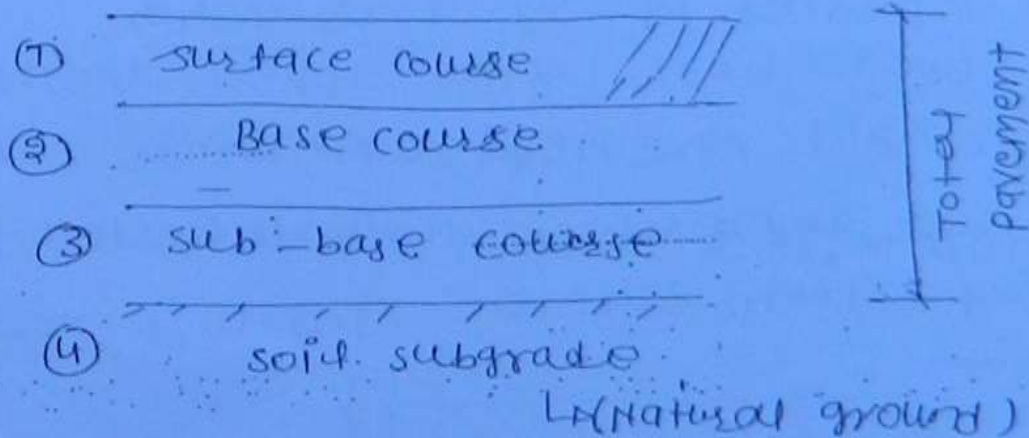 ① surface course
② Base course
③ sub-base course
④ soil subgrade
(Natural ground)
Total
pavement